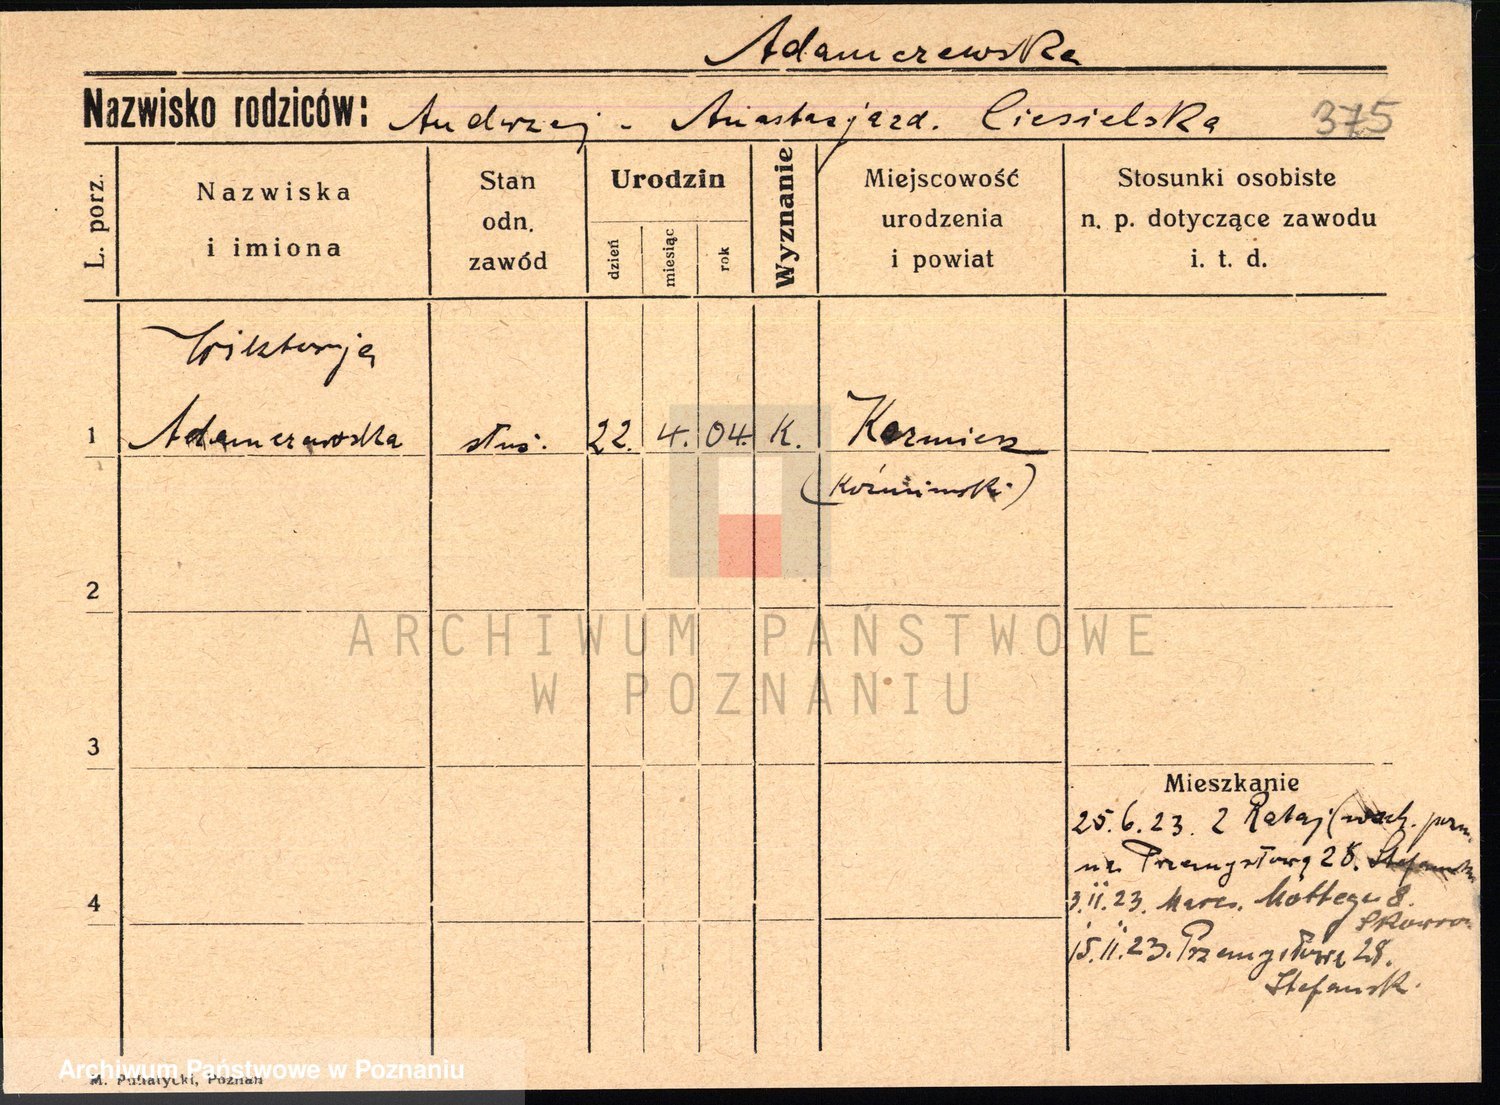 Adamczewska
Nazwisko rodziców: Andrzej - Anastazja zd. Ciesielska 375
L. porz.
Nazwiska
i imiona
Stan
odn.
zawód
Urodzin
dzień
miesiąc
rok
Wyznanie
Miejscowość
urodzenia
i powiat
Stosunki osobiste
n. p. dotyczące zawodu
i. t. d.
Wiktorja
1 Adamczewska służ. 22. 4. 04. K. Kozmiesz
(Koźmiński)
2
ARCHIWUM PAŃSTWOWE
W POZNANIU
3
Mieszkanie
25.6.23. Z Rataj (wsch. pozn.
na Przemysłową 28. Stefański
4
3.11.23. Marc. Mottego 8.
Skowron
15.11.23. Przemysłowa 28.
Stefańsk.
Archiwum Państwowe w Poznaniu
M. Puhatycki, Poznań